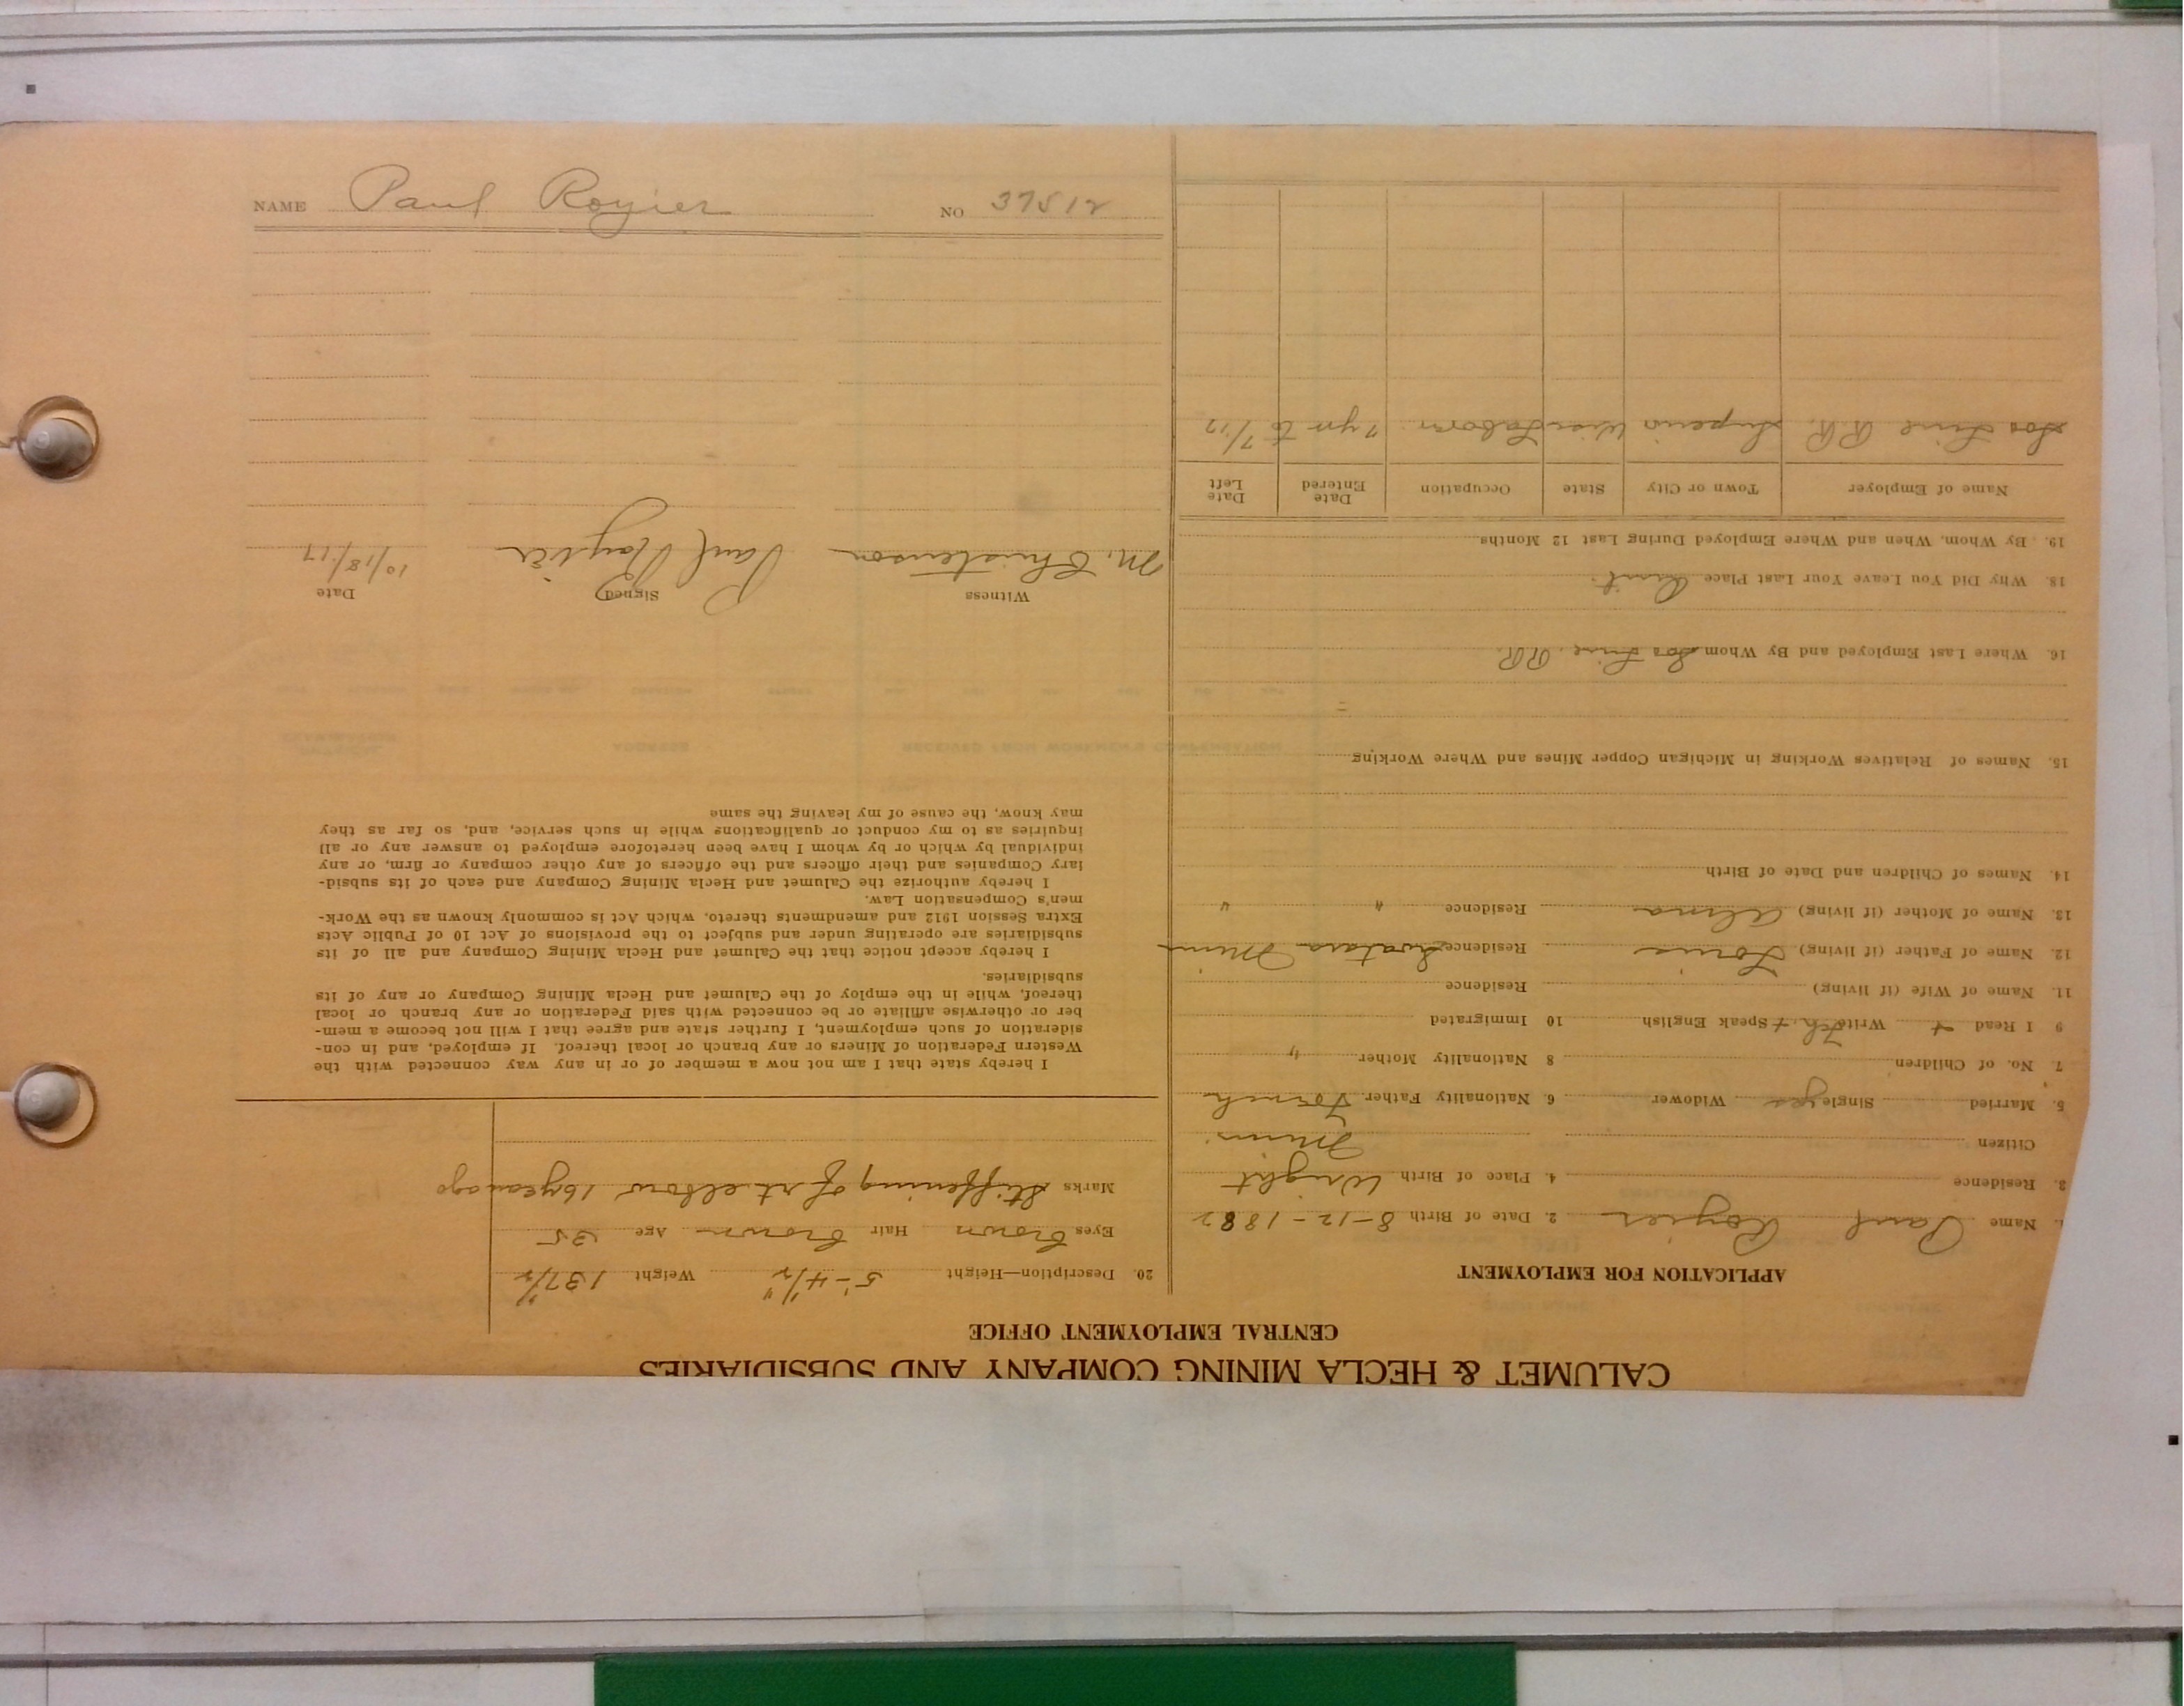 NAME Paul Rogier NO 37512
CALUMET & HECLA MINING COMPANY AND SUBSIDIARIES
CENTRAL EMPLOYMENT OFFICE
APPLICATION FOR EMPLOYMENT
1. Name Paul Rogier 2. Date of Birth 8-12-1882
3. Residence 4. Place of Birth Wright
Citizen Minn
5. Married Single yes Widower 6. Nationality Father French
7. No. of Children 8 Nationality Mother "
9 I Read + Write Fch + Speak English 10 Immigrated
11. Name of Wife (if living) Residence
12. Name of Father (if living) Louis Residence Swatara Minn
13. Name of Mother (if living) Alma Residence " "
14. Names of Children and Date of Birth
15. Names of Relatives Working in Michigan Copper Mines and Where Working
16. Where Last Employed and By Whom Soo Line RR
18. Why Did You Leave Your Last Place Quit
19. By Whom, When and Where Employed During Last 12 Months
Name of Employer Town or City State Occupation Date Entered Date Left
Soo Line RR. Superior Wis Labor 7 yrs to 7/17
20. Description—Height 5'-4 1/2" Weight 137 1/2#
Eyes brown Hair brown Age 35
Marks Stiffening of rt elbow 16 years ago
I hereby state that I am not now a member of or in any way connected with the
Western Federation of Miners or any branch or local thereof. If employed, and in con-
sideration of such employment, I further state and agree that I will not become a mem-
ber or otherwise affiliate or be connected with said Federation or any branch or local
thereof, while in the employ of the Calumet and Hecla Mining Company or any of its
subsidiaries.
I hereby accept notice that the Calumet and Hecla Mining Company and all of its
subsidiaries are operating under and subject to the provisions of Act 10 of Public Acts
Extra Session 1912 and amendments thereto, which Act is commonly known as the Work-
men's Compensation Law.
I hereby authorize the Calumet and Hecla Mining Company and each of its subsid-
iary Companies and their officers and the officers of any other company or firm, or any
individual by which or by whom I have been heretofore employed to answer any or all
inquiries as to my conduct or qualifications while in such service, and, so far as they
may know, the cause of my leaving the same
Witness Signed Date
M. Christenson Paul Rogier 10/18/17